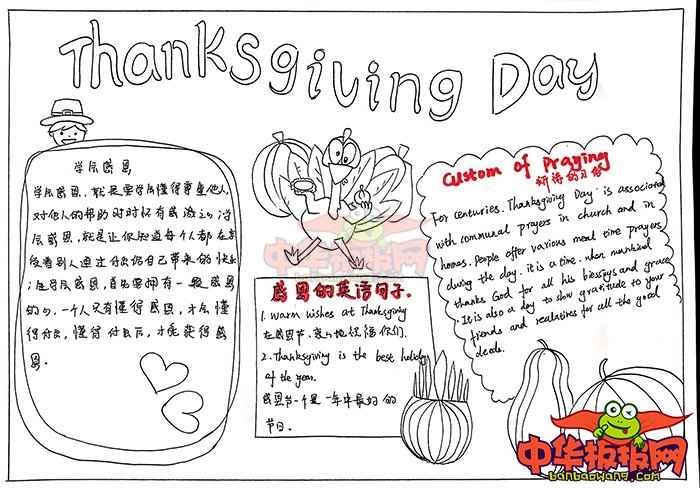 Thanksgiving Day
学会感恩
学会感恩，就是要学会懂得尊重他人，
对他人的帮助时时怀有感激之心，学
会感恩，就是让你知道每个人都在享
受着别人通过付出给自己带来的快乐
心
的心。一个人只有懂得感恩，才会懂
得付出，懂得付出后，才能获得感
恩。
感恩的英语句子.
1. Warm wishes at Thanksgiving
在感恩节，衷心地祝福你们.
2. Thanksgiving is the best holiday
of the year.
感恩节一个是一年中最好的
节日.
Custom of Praying
祈祷的习俗
For centuries. Thanksgiving Day is associated
with communal prayers in church and in
homes. People offer various meal time prayers
during the day. it is a time. when mankind
thanks God for all his blessigys and grace
It is also a day to show gratitude to your
fiends and realatires for all the good
deeds.
中华板报网
中华板报网
banbaowang.com